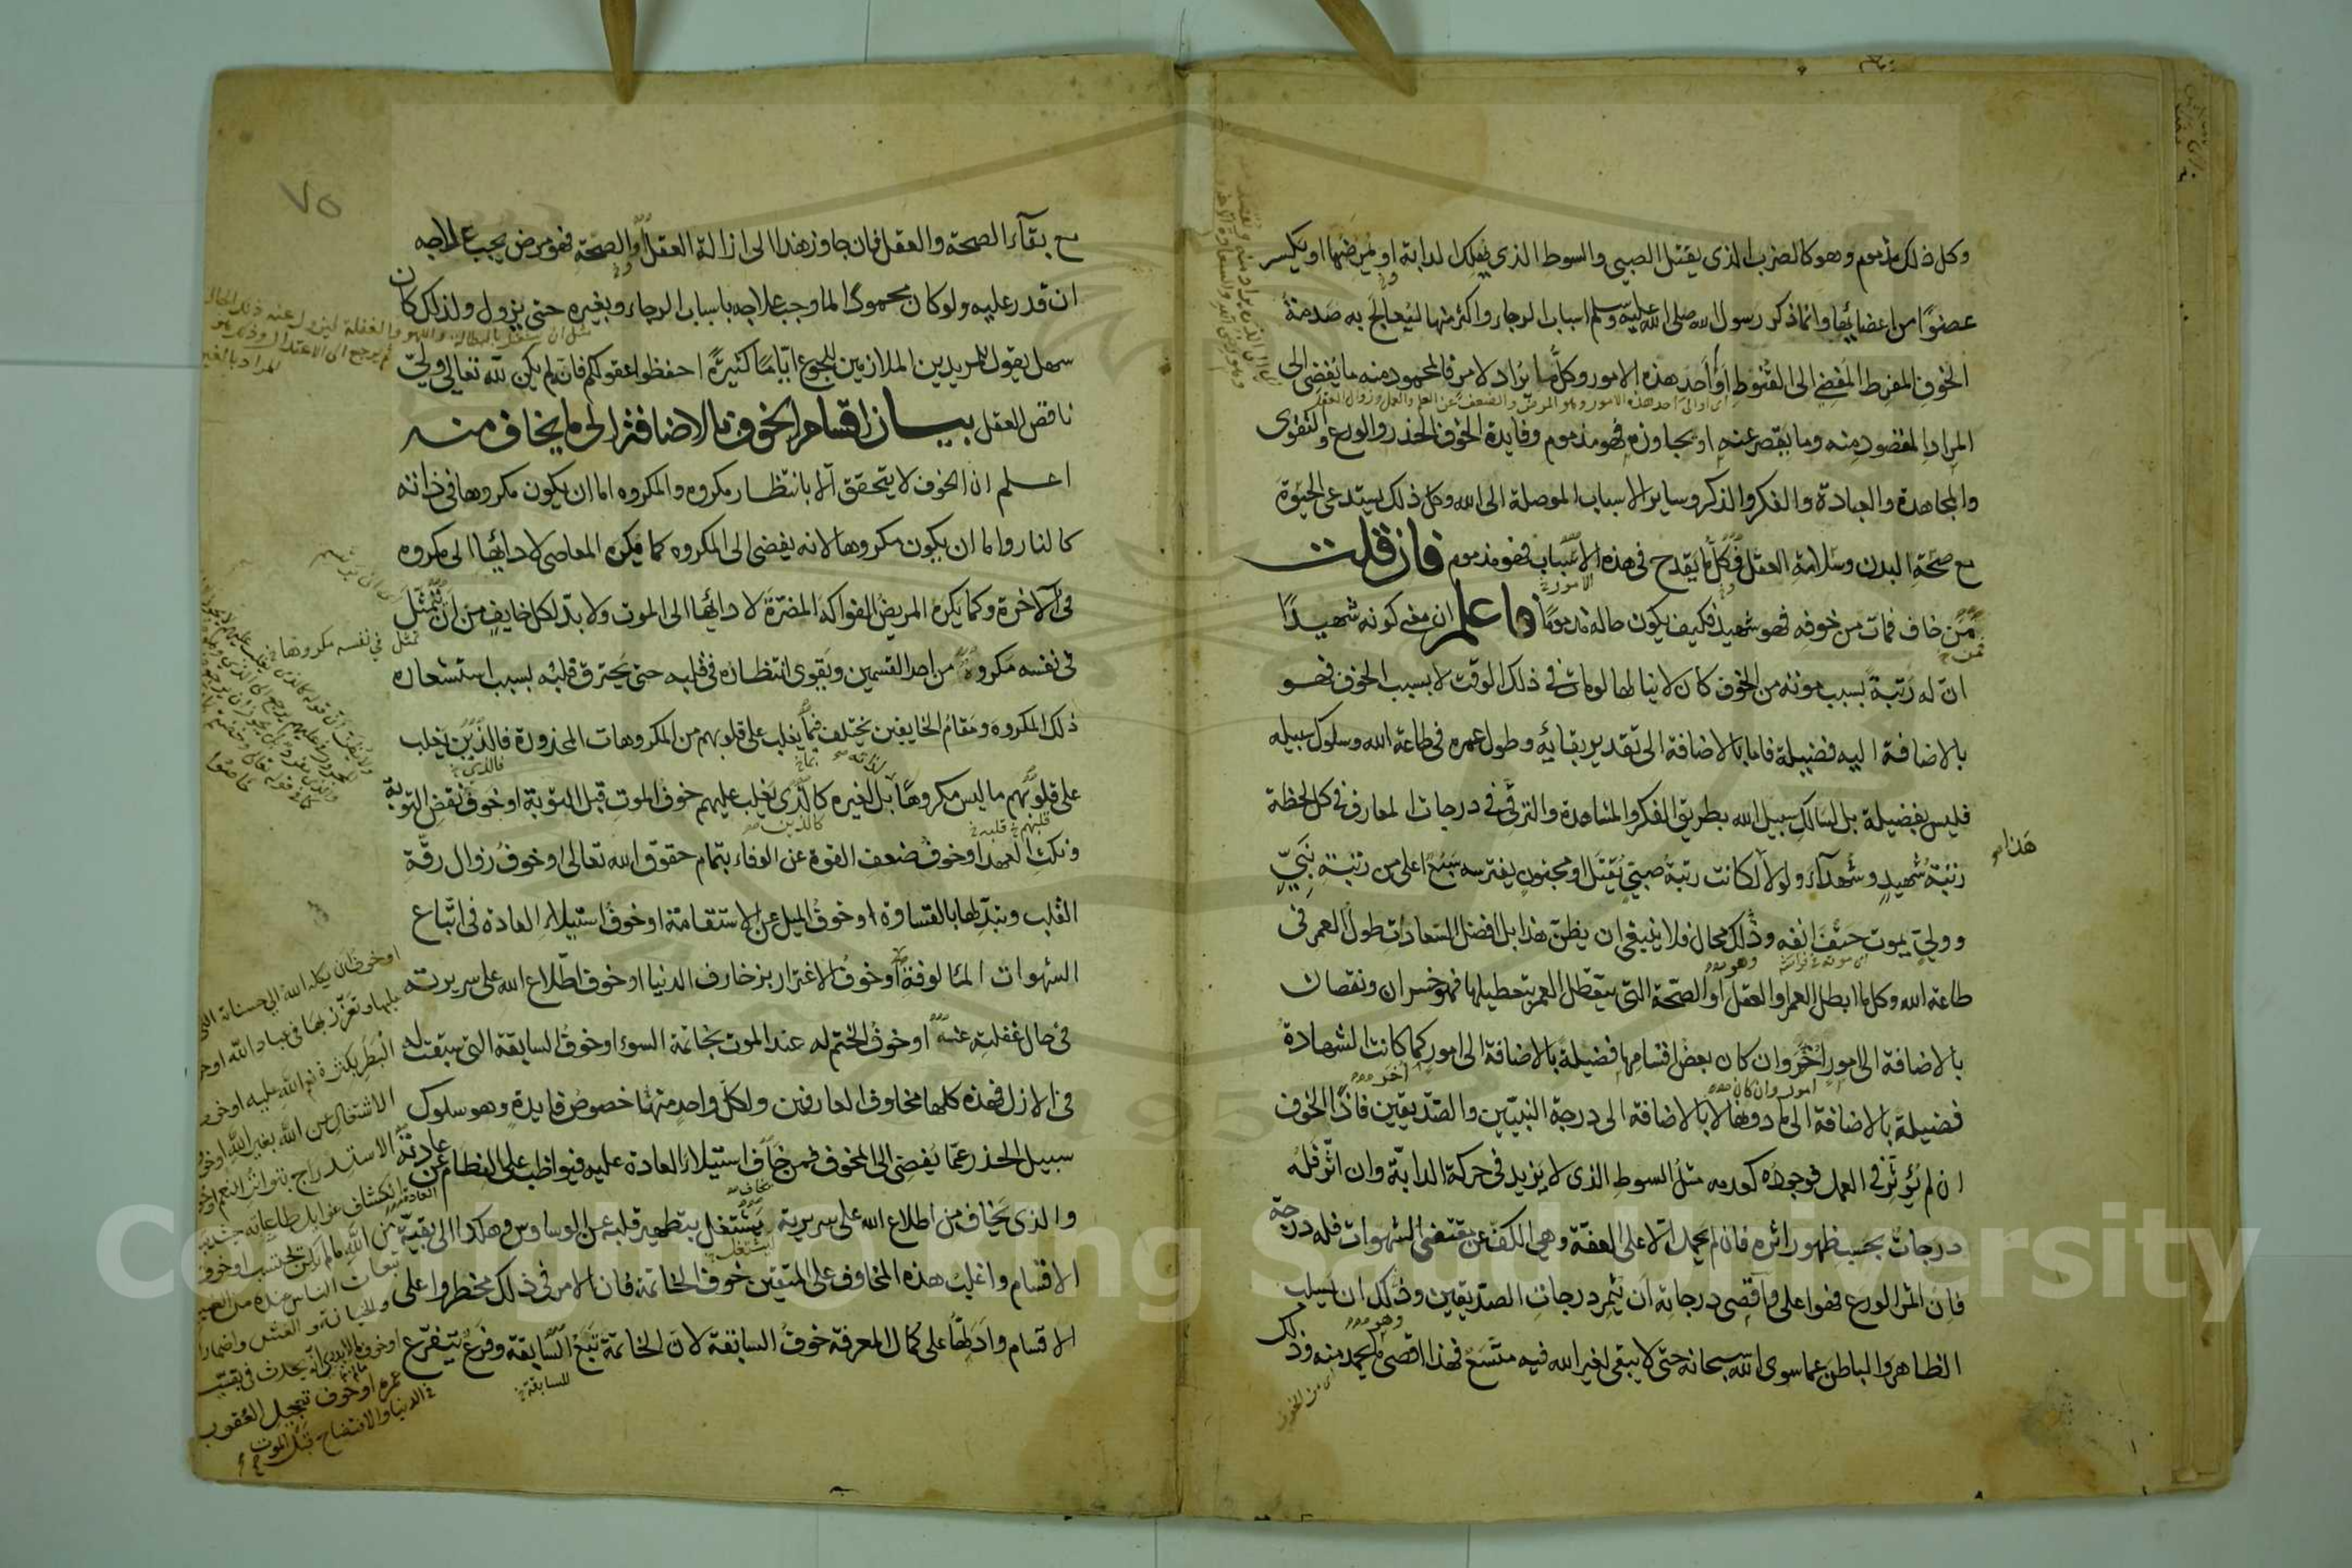 وكل ذلك مذموم وهو كالضرب الذى يقتل الصبى والسوط الذى يهلك الدابة او يمرضها او يكسر
عضوًا من اعضائها وانما ذكر رسول الله صلى الله عليه وسلم اسباب الرجاء واكثر منها ليُعالج به صدمة
الخوف المفرط المُفضى الى القنوط او أحد هذه الامور وكل ما يُراد لامر فالمحمود منه ما يُفضى الى
اى او الى احد هذه الامور وهو المرض والضعف عن العلم والعمل وزوال العقل
المراد المقصود منه وما يقصر عنه او يجاوزه فهو مذموم وفايدة الخوف الحذر والورع والتقوى
والمجاهدة والعبادة والفكر والذكر وساير الاسباب الموصلة الى الله وكل ذلك يستدعى الحيوة
مع صحة البدن وسلامة العقل فكل ما يقدح فى هذه الاسباب فهو مذموم فان قلت
الامور
من خاف فمات من خوفه فهو شهيد فكيف يكون حاله مذمومًا فاعلم ان معنى كونه شهيدًا
فمن
ان له رتبةً بسبب موته من الخوف كان لا ينالها لو مات فى ذلك الوقت لا بسبب الخوف فهو
بالاضافة اليه فضيلة فاما بالاضافة الى تقدير بقايه وطول عمره فى طاعة الله وسلوك سبيله
فليس بفضيلة بل لسالك سبيل الله بطريق الفكر والمشاهدة والترقى فى درجات المعارف فى كل لحظة
هذا
رتبة شهيدٍ وشهدآء ولولا لكانت رتبة صبىّ يُقتل او مجنونٍ يفترسه سبع اعلى من رتبة نبىّ
وولىّ يموت حتف انفه وذلك محال فلا ينبغى ان يظن هذا بل افضل السعادات طول العمر فى
اى موته على فراشه
وهو
طاعة الله وكل ما ابطل العمر او العقل او الصحة التى يتعطل العمر بتعطيلها فهو خسران ونقصان
بالاضافة الى امور أُخَر وان كان بعض اقسامها فضيلةً بالاضافة الى امور كما كانت الشهادة
امور وان كان
أخر
فضيلة بالاضافة الى ما دونها لا بالاضافة الى درجة النبيّين والصديقين فاذًا الخوف
ان لم يُؤثر فى العمل فوجوده كعدمه مثل السوط الذى لا يزيد فى حركة الدابّة وان اثّر فله
درجات بحسب ظهور اثره فان لم يحمل الا على العفّة وهى الكفّ عن مقتضى الشهوات فله درجة
فان اثمر الورع فهو اعلى واقصى درجاته ان يُثمر درجات الصديقين وذلك ان يسلب
وهو
الظاهر والباطن عما سوى الله سبحانه حتى لا يبقى لغير الله فيه متّسع فهذا اقصى ما يحمد منه وذلك
اى من الخوف
٧٥
مع بقآء الصحة والعقل فان جاوز هذا الى ازالة العقل او الصحّة فهو مرض يجب علاجه
ان قدر عليه ولو كان محمودًا لما وجب علاجه باسباب الرجاء وبغيره حتى يزول ولذلك كان
مثل ان يشتغل بالبطالة واللهو والغفلة ليزول عنه ذلك الحال
ثم يرجع الى الاعتدال وذكر هو
المراد بالغير
سهل يقول للمريدين الملازمين للجوع ايّامًا كثيرةً احفظوا عقولكم فانه لم يكن لله تعالى ولىّ
ناقص العقل بيان اقسام الخوف بالاضافة الى ما يخاف منه
اعلم ان الخوف لا يتحقق الا بانتظار مكروه والمكروه اما ان يكون مكروها فى ذاته
كالنار واما ان يكون مكروها لانه يفضى الى المكروه كما يُكره المعاصى لادائها الى مكروه
فى الآخرة وكما يكره المريض الفواكه المضرّة لادائها الى الموت ولا بدّ لكل خايف من ان يتمثل
تمثل فى نفسه مكروها
فى نفسه مكروه من احد القسمين ويقوى انتظاره فى قلبه حتى يحترق قلبه بسبب استشعاره
ذلك المكروه ومقام الخايفين يختلف فيما يغلب على قلوبهم من المكروهات المحذورة فالذين يغلب
لذاته
فالذى
على قلوبهم ما ليس مكروهًا بل لغيره كالذى يغلب عليهم خوف الموت قبل التوبة او خوف نقض التوبة
قلبهم
قلبه
كالذين
ونكث العهد او خوف ضعف القوة عن الوفاء بتمام حقوق الله تعالى او خوف زوال رقّة
القلب وتبدّلها بالقساوة او خوف الميل عن الاستقامة او خوف استيلاء العادة فى اتّباع
الشهوات المألوفة او خوف الاغترار بزخارف الدنيا او خوف اطّلاع الله على سريرته
فى حال غفلته عنه او خوف الختم له عند الموت بخاتمة السوء او خوف السابقة التى سبقت له
فى الازل فهذه كلها مخاوف العارفين ولكل واحدٍ منها خصوص فايدةٍ وهو سلوك
سبيل الحذر عمّا يُفضى الى المخوف فمن خاف استيلاء العادة عليه فيواظب على الفطام عن عادته
يخاف
العادة
والذى يخاف من اطلاع الله على سريرته يشتغل بتطهير قلبه عن الوساوس وهكذا الى بقيّة
ليشتغل
الاقسام واغلب هذه المخاوف على المتقين خوف الخاتمة فان الامر فى ذلك مخطر واعلى
الاقسام وادلّها على كمال المعرفة خوف السابقة لان الخاتمة تَبَع السابقة وفرع يتفرّع
للسابقة
او خوف ان يكله الله الى حسناته التى
عليها وتعزّز بها فى عباد الله او خوف
البطر بكثرة نعم الله عليه او خوف
الاشتغال عن الله بغير الله او خوف
الاستدراج بتواتر النعم او خوف
انكشاف غوايل طاعاته حيث يبدو
من الله ما لم يكن يحتسب او خوف
تبعات الناس عنده من الغيبة
والخيانة والغش واضمار
او خوف ما لا يدرى انه يحدث فى بقية
عمره او خوف تعجيل العقوبة
فى الدنيا والافتضاح قبل الموت
Copyright © King Saud University
1957